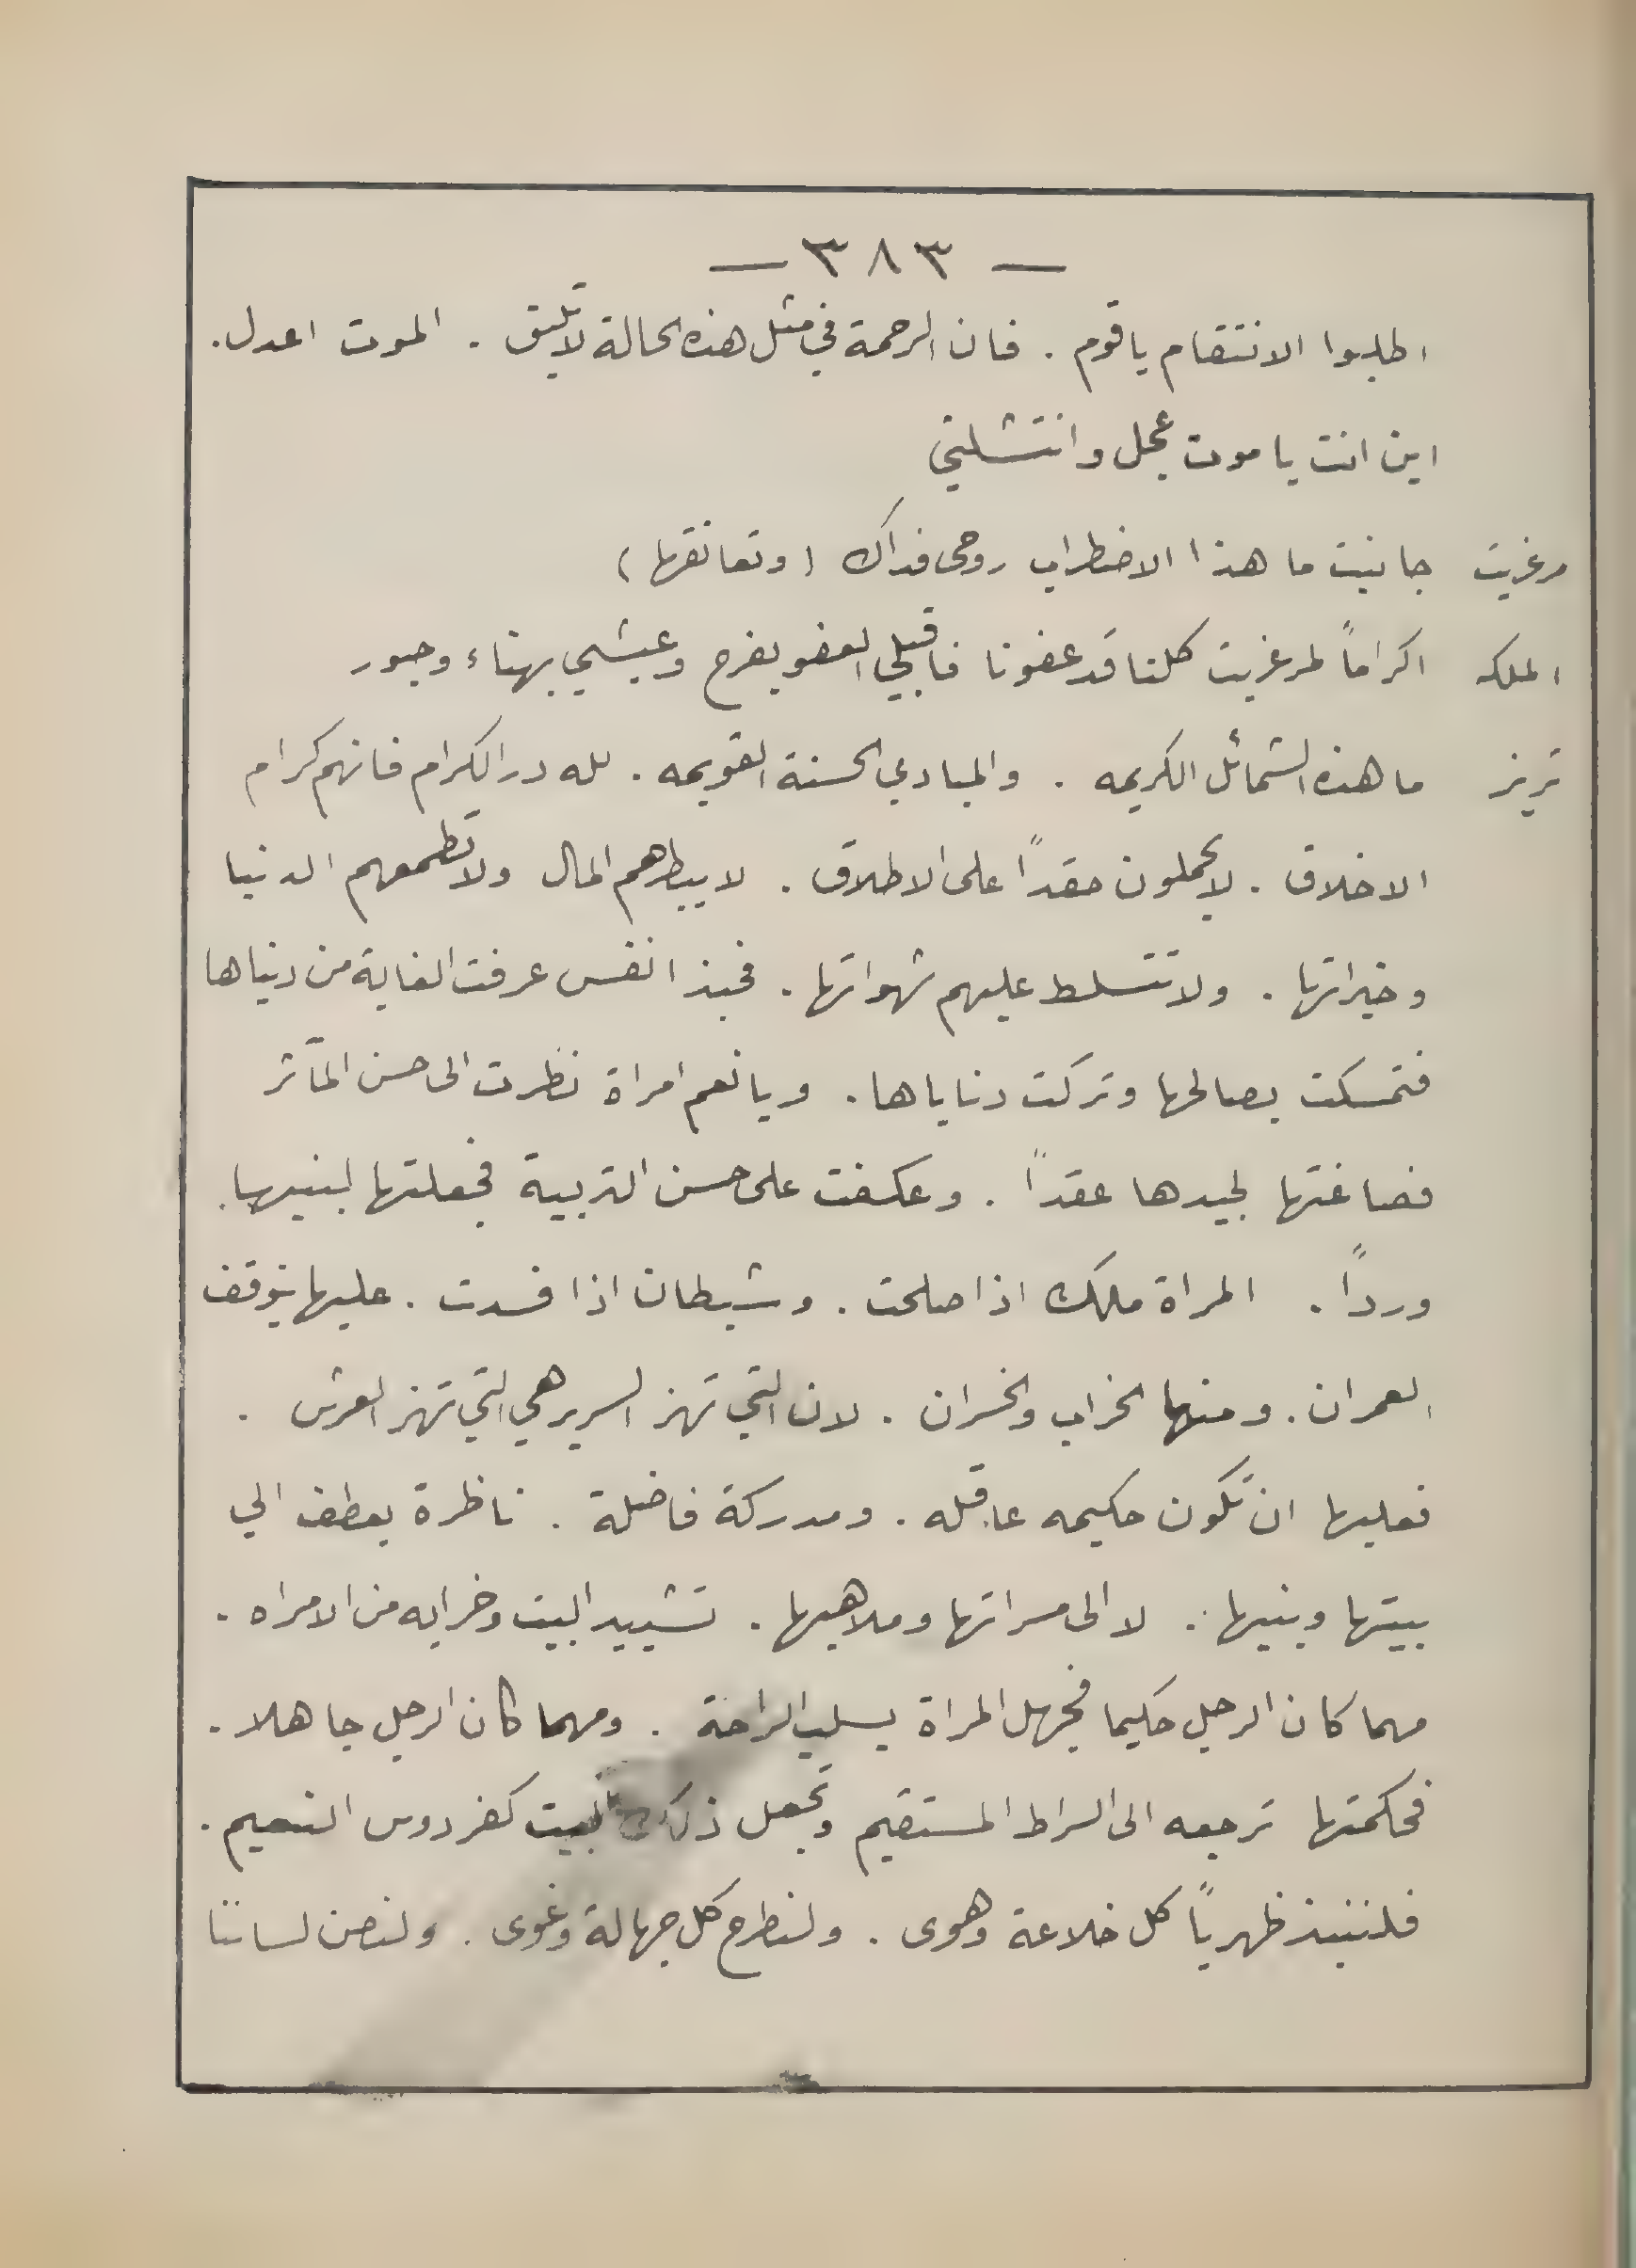 — ٣٨٣ —
اطلبوا الانتقام ياقوم . فان الرحمة في مثل هذه الحالة لا تليق . الموت اعدل .
اين انت يا موت عجل وانتشلني
مرغريت جانيت ما هذا الاضطراب روحي فداك ( وتعانقها )
الملكه اكراماً لمرغريت كلنا قد عفونا فاقبلي العفو بفرح وعيشي بهناء وحبور
تريز ما هذه الشمائل الكريمه . والمبادي الحسنة القويمه . لله در الكرام فانهم كرام
الاخلاق . لا يحملون حقداً على الاطلاق . لا يبطرهم المال ولا تطمعهم الدنيا
وخيراتها . ولا تتسلط عليهم شهواتها . فحبذا نفس عرفت الغاية من دنياها
فتمسكت بصالحها وتركت دناياها . ويا نعم امراة نظرت الى حسن المآثر
فصاغتها لجيدها عقداً . وعكفت على حسن التربية فجعلتها لبنيها .
ورداً . المراة ملاك اذا صلحت . وشيطان اذا فسدت . عليها يتوقف
العمران . ومنها الخراب والخسران . لان التي تهز السرير هي التي تهز العرش .
فعليها ان تكون حكيمه عاقله . ومدركة فاضلة . ناظرة بعطف الي
بيتها وبنيها . لا الى مسراتها وملاهيها . تشييد البيت وخرابه من الامراه .
مهما كان الرجل حكيما فجهل المراة يسلب الراحة . ومهما كان الرجل جاهلا .
فحكمتها ترجعه الى السراط المستقيم وتجعل ذلك البيت كفردوس النعيم .
فلننبذ ظهرياً كل خلاعة وهوى . ولنطرح كل جهالة وغوى . ولنصن لساننا